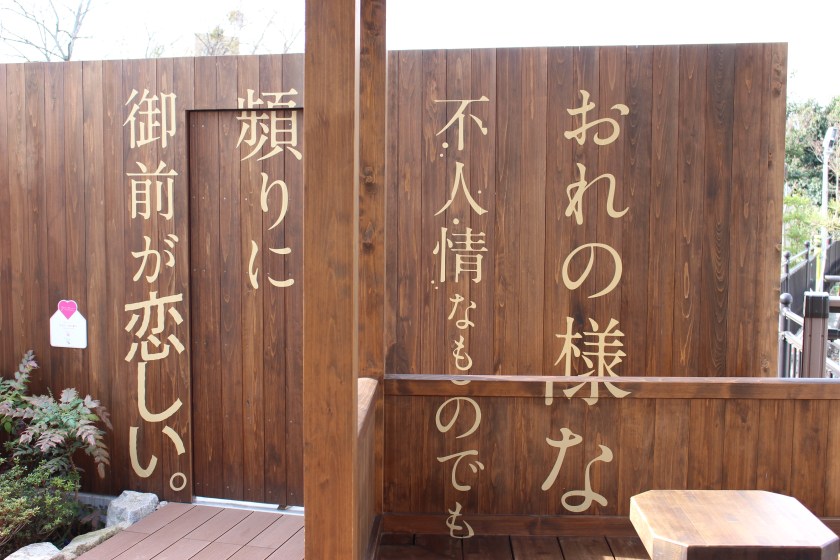 おれの様な
不人情なものでも
頻りに
御前が恋しい。